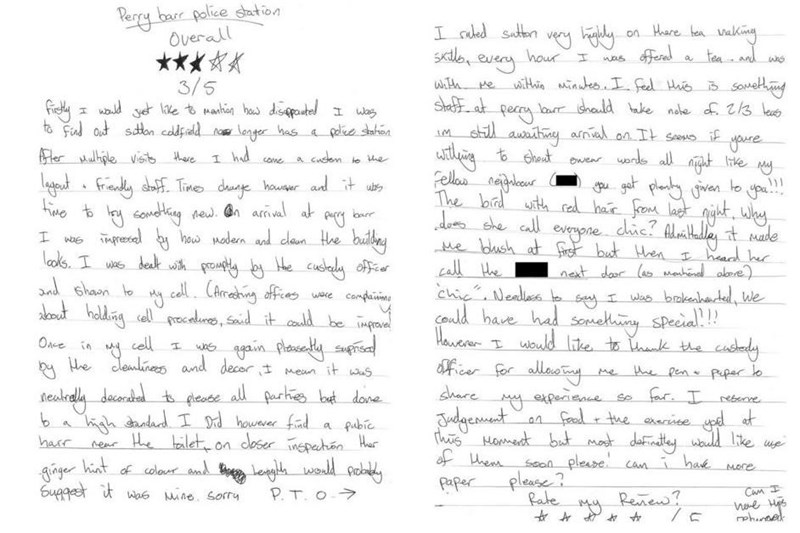 Perry barr police station
Overall
★★★☆☆
3/5
Firstly I would just like to mention how disappointed I was
to find out sutton coldfield no longer has a police station
After multiple visits there I had come a custom to the
layout + friendly staff. Times change however and it was
time to try something new. On arrival at perry barr
I was impressed by how modern and clean the building
looks. I was dealt with promptly by the custody officer
and shown to my cell. (Arresting officers were complaining
about holding cell procedures, said it could be improved
Once in my cell I was again pleasently suprised
by the cleanliness and decor, I mean it was
neutrally decorated to please all parties but done
to a high standard. I Did however find a pubic
harr near the toilet, on closer inspection ther
ginger hint of colour and length would probably
suggest it was mine. sorry P.T.O. →
I rated sutton very highly on there tea making
skills, every hour I was offered a tea and was
with me within minutes. I feel this is something
staff at perry barr should take note of. 2/3 teas
im still awaiting arrival on. It seems if youre
willying to shout swear words all night like my
fellow neighbour ( ) you get plenty given to you!!!
The bird with red hair from last night, Why
does she call everyone chic? Admittadley it made
me blush at first but then I heard her
call the next door (as mentiond above)
"chic". Needless to say I was brokenhearted, We
could have had something special!!!
However I would like to thank the custody
officer for allowing me the pen + paper to
share my experience so far. I reserve
Judgement on food + the exercise yard at
this moment but most definetley would like use
of them soon please! can i have more
paper please?
Rate my Review?
☆ ☆ ☆ ☆ ☆ /5
Can I
have this